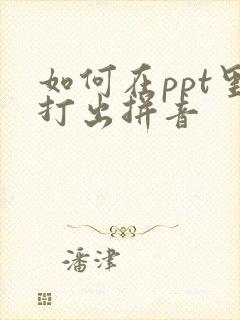 如何在ppt里
打出拼音
潘津